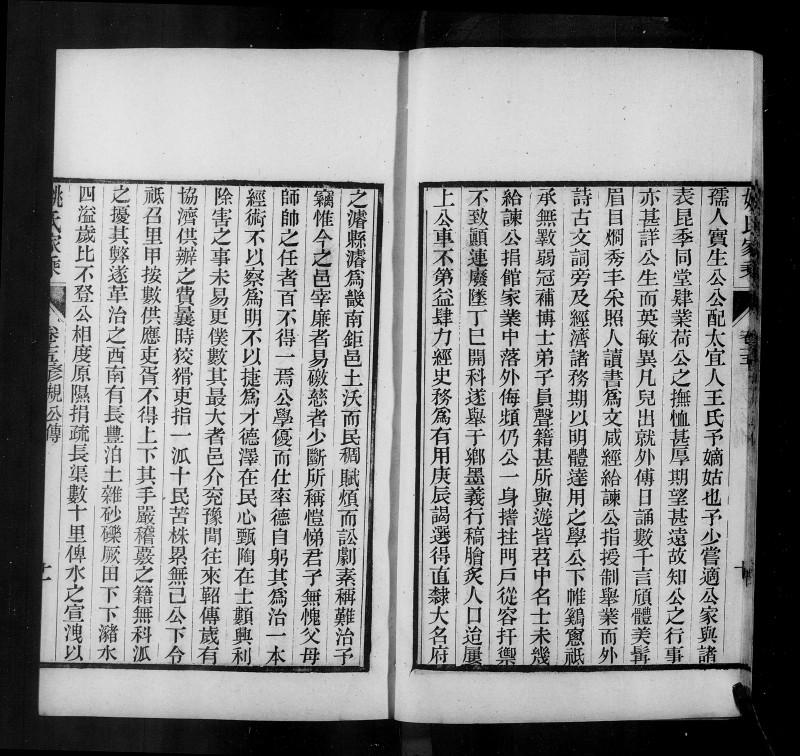 姚氏家乘
卷十五
孺人實生公公配太宜人王氏予嫡姑也予少嘗適公家與諸
表昆季同堂肄業荷公之撫恤甚厚期望甚遠故知公之行事
亦甚詳公生而英敏異凡兒出就外傅日誦數千言頎體美髯
眉目烱秀丰采照人讀書爲文咸經給諫公指授制舉業而外
詩古文詞旁及經濟諸務期以明體達用之學公下帷鷄窻祇
承無斁弱冠補博士弟子員聲籍甚所與遊皆茗中名士未幾
給諫公捐館家業中落外侮頻仍公一身撐拄門戶從容扞禦
不致顚連廢墜丁巳開科遂舉于鄉墨義行稿膾炙人口迨屢
上公車不第益肆力經史務爲有用庚辰謁選得直隸大名府
之濬縣濬爲畿南鉅邑土沃而民稠賦煩而訟劇素稱難治予
竊惟今之邑宰廉者易礉慈者少斷所稱愷悌君子無愧父母
師帥之任者百不得一焉公學優而仕率德自躬其爲治一本
經術不以察爲明不以捷爲才德澤在民心甄陶在士類興利
除害之事未易更僕數其最大者邑介兗豫間往來軺傳歲有
協濟供辦之費曩時狡猾吏指一派十民苦株累無已公下令
祗召里甲按數供應吏胥不得上下其手嚴稽覈之籍無科派
之擾其弊遂革治之西南有長豐泊土雜砂礫厥田下下瀦水
四溢歲比不登公相度原隰捐疏長渠數十里俾水之宣洩以
姚氏家乘
卷十五修覩公傳
十一